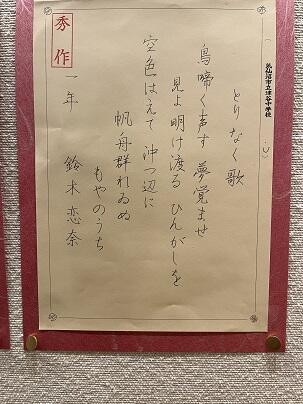 気仙沼市立津谷中学校
とりなく歌
鳥啼く声す 夢覚ませ
見よ明け渡る ひんがしを
空色はえて 沖つ辺に
帆舟群れゐぬ
もやのうち
秀作
一年 鈴木恋奈